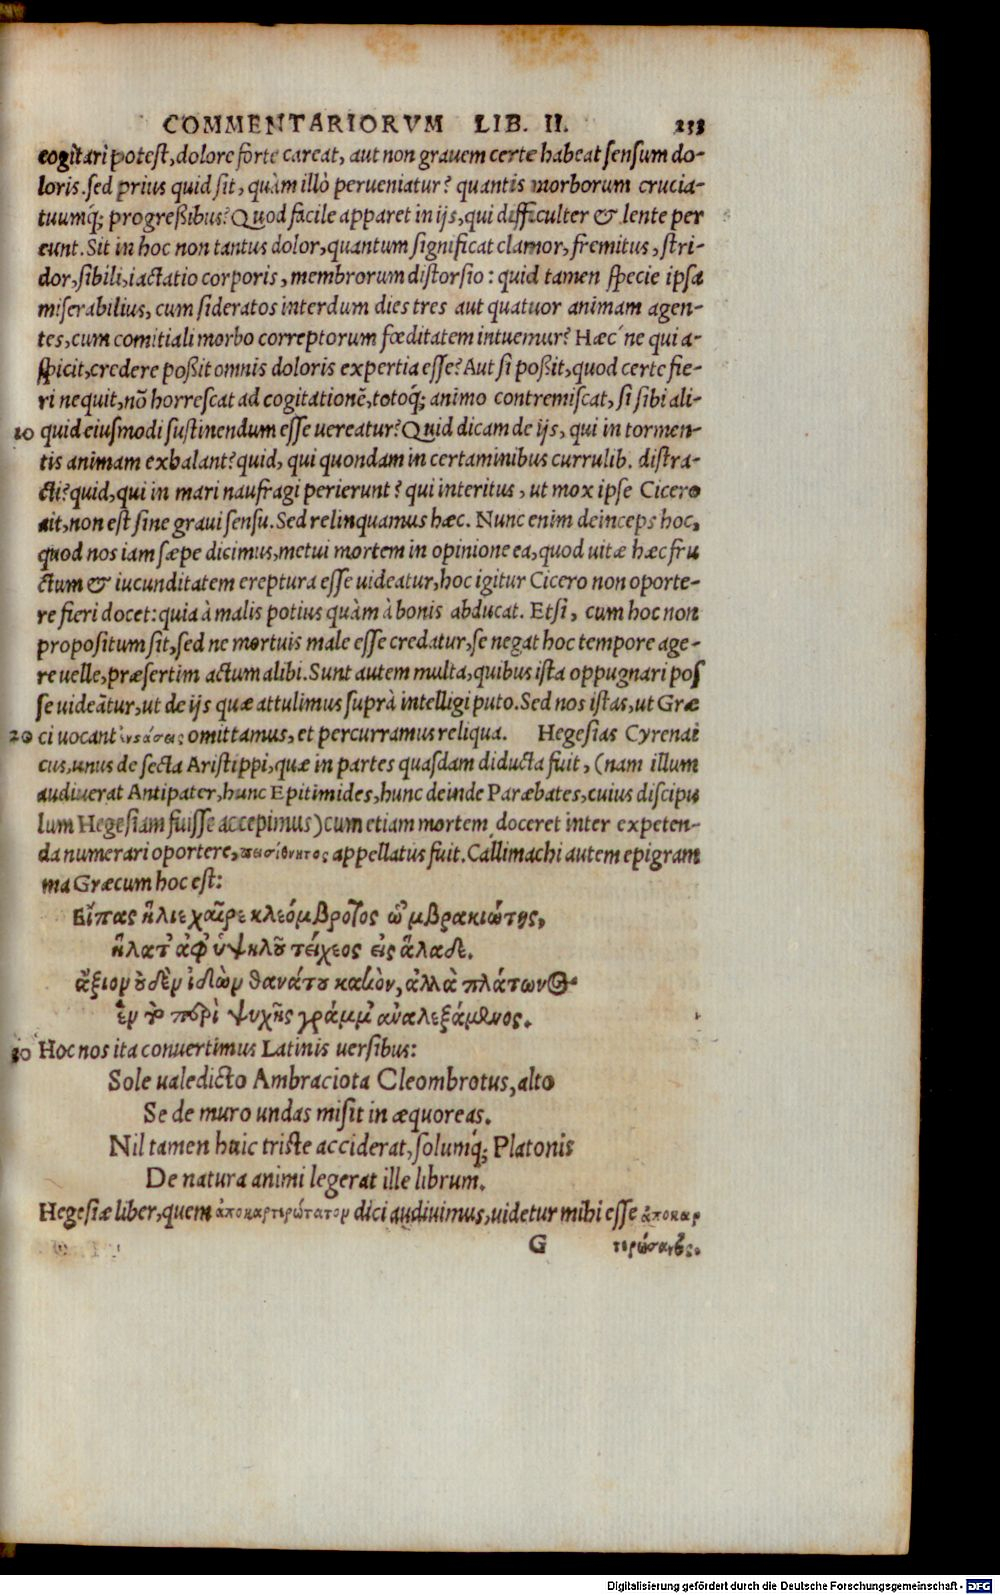 COMMENTARIORVM LIB. II. 233
cogitari potest, dolore forte careat, aut non grauem certe habeat sensum do-
loris. sed prius quid sit, quàm illò perueniatur? quantis morborum crucia-
tuumq́; progreßibus? Quod facile apparet in ijs, qui difficulter & lente per
eunt. Sit in hoc non tantus dolor, quantum significat clamor, fremitus, stri-
dor, sibili, iactatio corporis, membrorum distorsio: quid tamen specie ipsa
miserabilius, cum sideratos interdum dies tres aut quatuor animam agen-
tes, cum comitiali morbo correptorum fœditatem intuemur? Hæc´ne qui a-
spicit, credere poßit omnis doloris expertia esse? Aut si poßit, quod certe fie-
ri nequit, nō horrescat ad cogitationē, totoq́; animo contremiscat, si sibi ali-
10 quid eiusmodi sustinendum esse uereatur? Quid dicam de ijs, qui in tormen-
tis animam exhalant? quid, qui quondam in certaminibus currulib. distra-
cti? quid, qui in mari naufragi perierunt? qui interitus, ut mox ipse Cicero
ait, non est sine graui sensu. Sed relinquamus hæc. Nunc enim deinceps hoc,
quod nos iam sæpe dicimus, metui mortem in opinione ea, quod uitæ hæc fru
ctum & iucunditatem ereptura esse uideatur, hoc igitur Cicero non oporte-
re fieri docet: quia à malis potius quàm à bonis abducat. Etsi, cum hoc non
propositum sit, sed ne mortuis male esse credatur, se negat hoc tempore age-
re uelle, præsertim actum alibi. Sunt autem multa, quibus ista oppugnari pos
se uideātur, ut de ijs quæ attulimus suprà intelligi puto. Sed nos istas, ut Græ
20 ci uocant omittamus, et percurramus reliqua. Hegesias Cyrenai
cus, unus de secta Aristippi, quæ in partes quasdam diducta fuit, (nam illum
audiuerat Antipater, hunc Epitimides, hunc deinde Paræbates, cuius discipu
lum Hegesiam fuisse accepimus) cum etiam mortem doceret inter expeten-
da numerari oportere, πεισιθάνατος appellatus fuit. Callimachi autem epigram
ma Græcum hoc est:
Εἴπας ἥλιε χαῖρε κλεόμβροτος ὡμβρακιώτης,
ἥλατ᾽ ἀφ᾽ ὑψηλοῦ τείχεος εἰς ἅλαδε.
ἄξιον οὐδὲν ἰδὼν θανάτου κακὸν, ἀλλὰ πλάτωνος
ἓν τὸ περὶ ψυχῆς γράμμ᾽ ἀναλεξάμενος.
30 Hoc nos ita conuertimus Latinis uersibus:
Sole ualedicto Ambraciota Cleombrotus, alto
Se de muro undas misit in æquoreas.
Nil tamen huic triste acciderat, solumq́; Platonis
De natura animi legerat ille librum.
Hegesiæ liber, quem ἀποκαρτερώτατον dici audiuimus, uidetur mihi esse ἀποκαρ
G τερώσαντος.
Digitalisierung gefördert durch die Deutsche Forschungsgemeinschaft - DFG